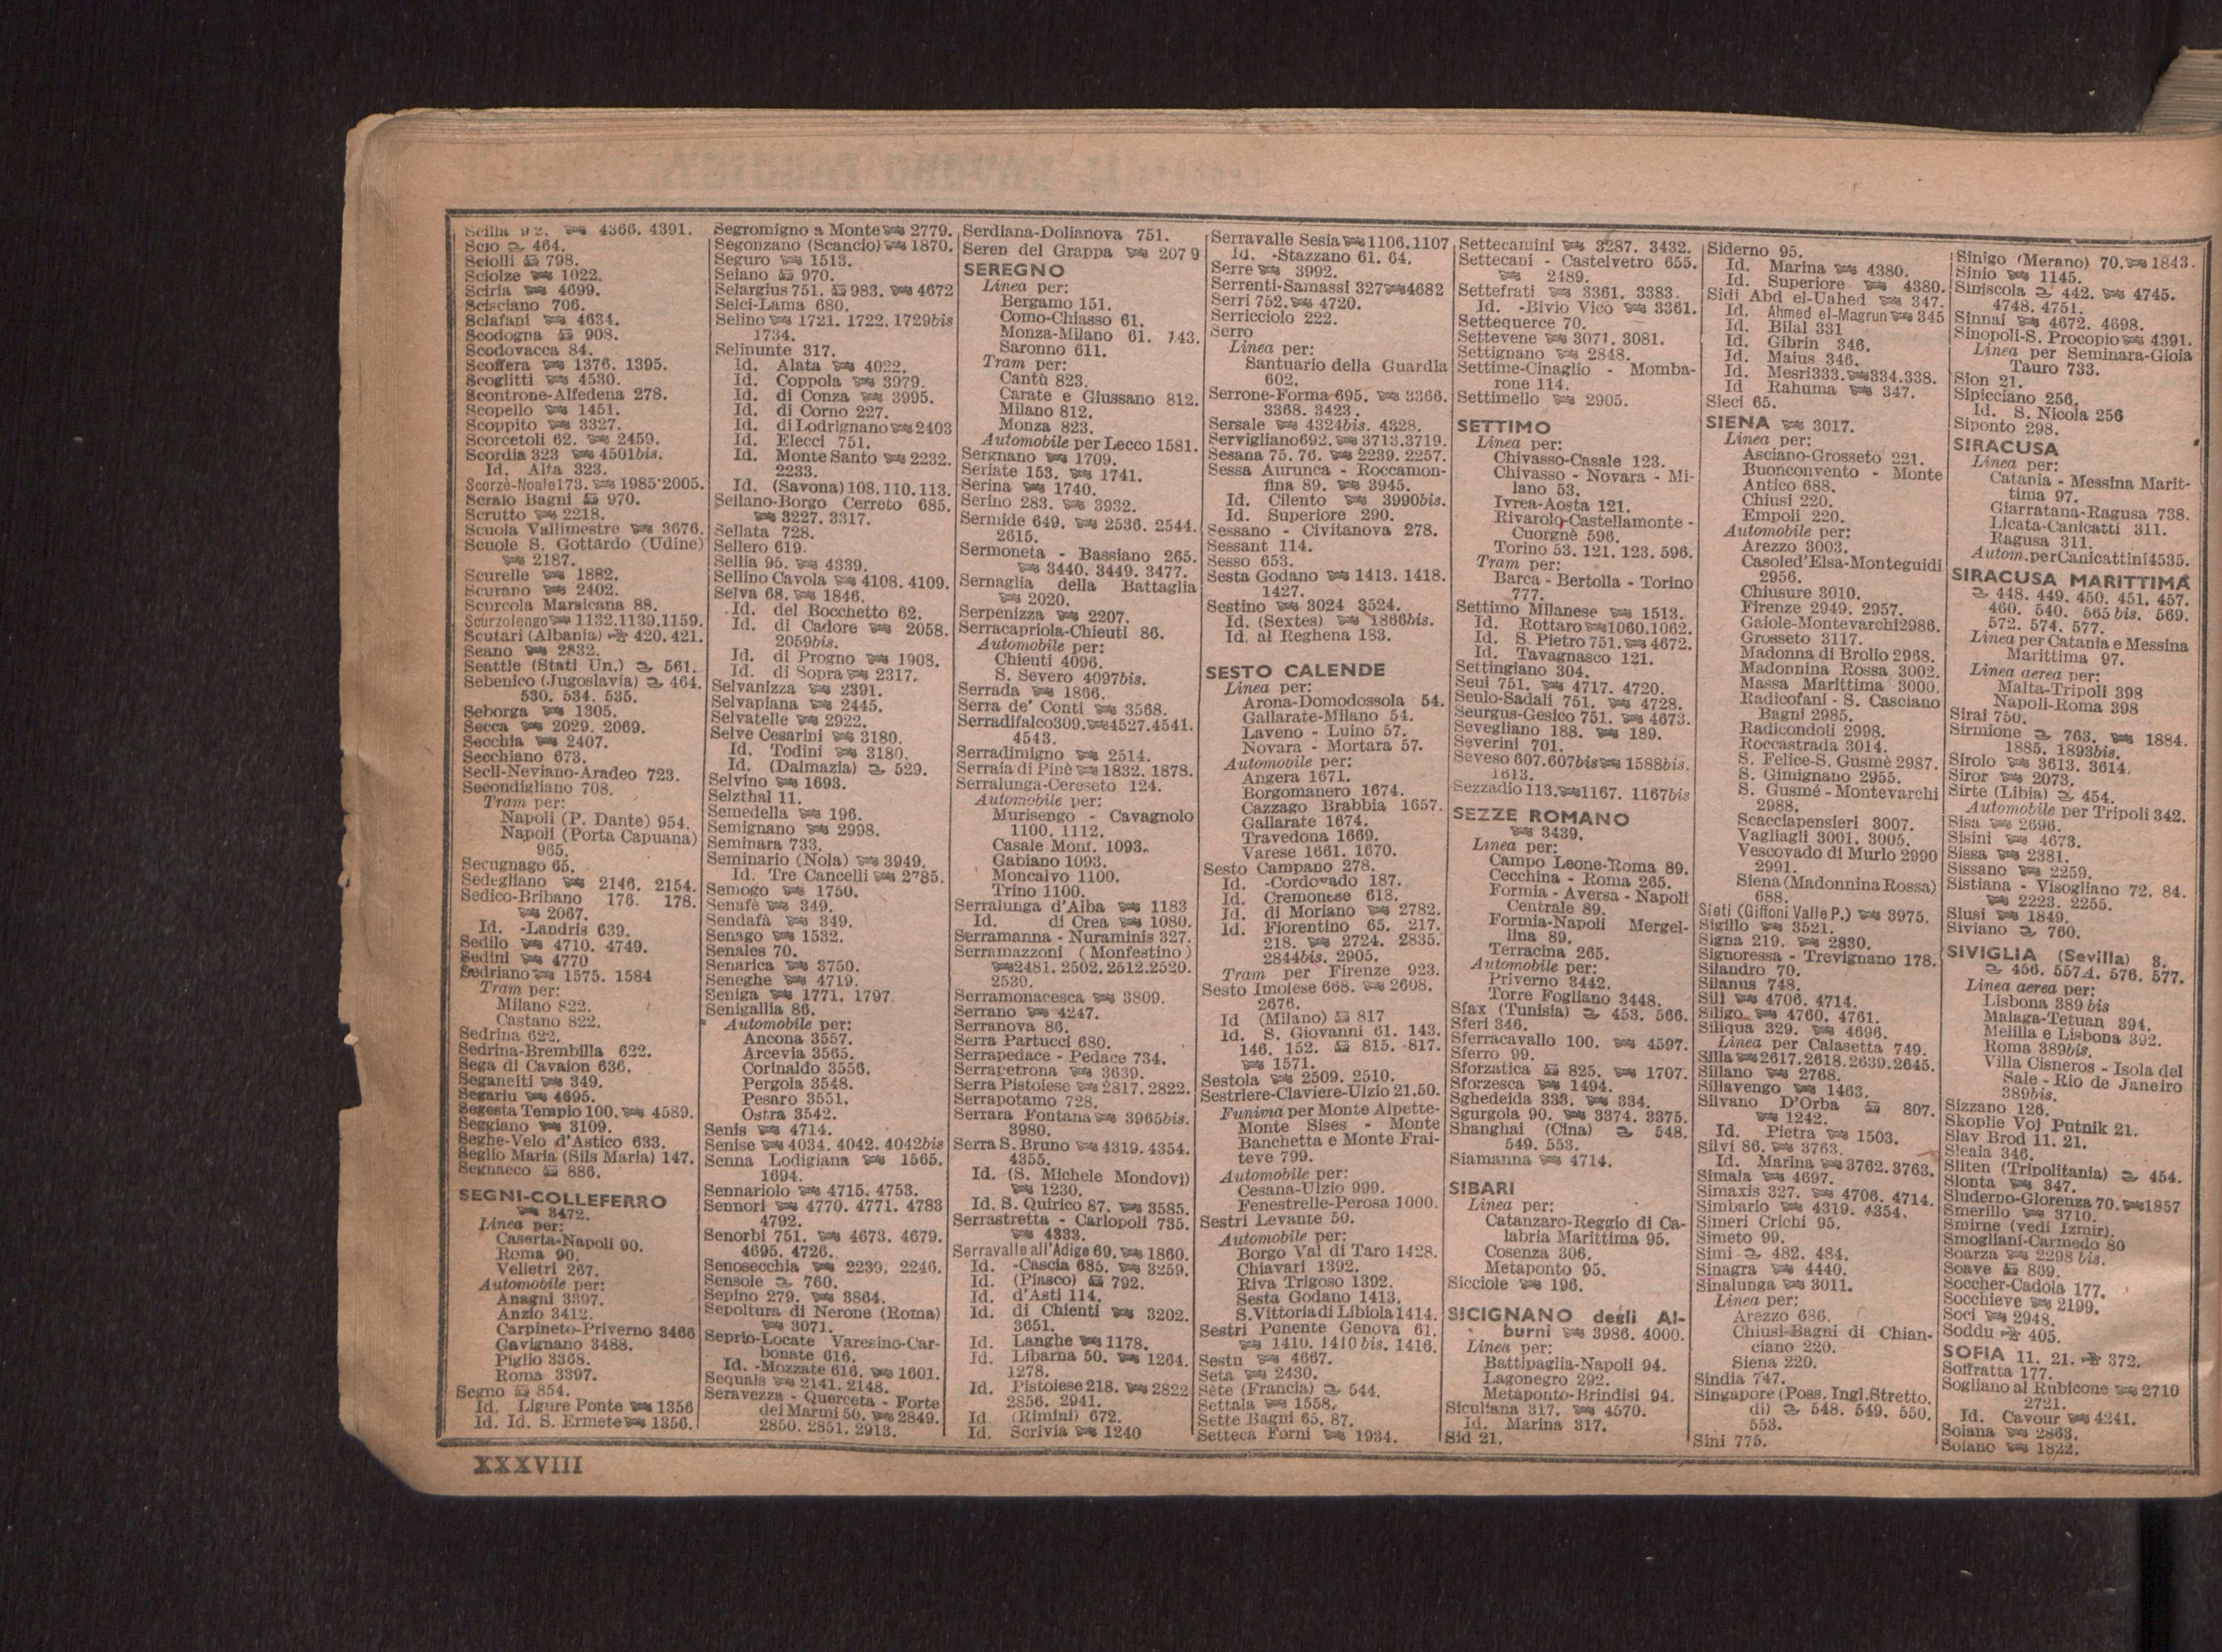 Scilla 92. 4366. 4391.
Scio 464.
Sciolli 798.
Sciolze 1022.
Sciria 4699.
Scisciano 706.
Sclafani 4634.
Scodogna 908.
Scodovacca 84.
Scoffera 1376. 1395.
Scoglitti 4530.
Scontrone-Alfedena 278.
Scopello 1451.
Scoppito 3327.
Scorcetoli 62. 2459.
Scordia 323 4501bis.
Id. Alta 323.
Scorzè-Noale 173. 1985 2005.
Scraio Bagni 970.
Scrutto 2218.
Scuola Vallimestre 3676.
Scuole S. Gottardo (Udine)
2187.
Scurelle 1882.
Scurano 2402.
Scurcola Marsicana 88.
Scurzolengo 1132.1139.1159.
Scutari (Albania) 420. 421.
Seano 2832.
Seattle (Stati Un.) 561.
Sebenico (Jugoslavia) 464.
530. 534. 535.
Seborga 1305.
Secca 2029. 2069.
Secchia 2407.
Secchiano 673.
Seclì-Neviano-Aradeo 723.
Secondigliano 708.
Tram per:
Napoli (P. Dante) 954.
Napoli (Porta Capuana)
965.
Secugnago 65.
Sedegliano 2146. 2154.
Sedico-Bribano 176. 178.
2067.
Id. -Landris 639.
Sedilo 4710. 4749.
Sedini 4770
Sedriano 1575. 1584
Tram per:
Milano 822.
Castano 822.
Sedrina 622.
Sedrina-Brembilla 622.
Sega di Cavaion 636.
Seganeiti 349.
Segariu 4695.
Segesta Tempio 100. 4589.
Seggiano 3109.
Seghe-Velo d'Astico 633.
Seglio Maria (Sils Maria) 147.
Segnacco 886.
SEGNI-COLLEFERRO
3472.
Linea per:
Caserta-Napoli 90.
Roma 90.
Velletri 267.
Automobile per:
Anagni 3397.
Anzio 3412.
Carpineto-Priverno 3466
Gavignano 3488.
Piglio 3368.
Roma 3397.
Segno 854.
Id. Ligure Ponte 1356
Id. Id. S. Ermete 1356.
Segromigno a Monte 2779.
Segonzano (Scancio) 1870.
Seguro 1513.
Seiano 970.
Selargius 751. 983. 4672
Selci-Lama 680.
Selino 1721. 1722. 1729bis
1734.
Selinunte 317.
Id. Alata 4022.
Id. Coppola 3979.
Id. di Conza 3995.
Id. di Corno 227.
Id. di Lodrignano 2403
Id. Elecci 751.
Id. Monte Santo 2232.
2233.
Id. (Savona) 108. 110. 113.
Sellano-Borgo Cerreto 685.
3227. 3317.
Sellata 728.
Sellero 619.
Sellia 95. 4339.
Sellino Cavola 4108. 4109.
Selva 68. 1846.
Id. del Bocchetto 62.
Id. di Cadore 2058.
2059bis.
Id. di Progno 1908.
Id. di Sopra 2317.
Selvanizza 2391.
Selvapiana 2445.
Selvatelle 2922.
Selve Cesarini 3180.
Id. Todini 3180.
Id. (Dalmazia) 529.
Selvino 1693.
Selzthal 11.
Semedella 196.
Semignano 2998.
Seminara 733.
Seminario (Nola) 3949.
Id. Tre Cancelli 2785.
Semogo 1750.
Senafè 349.
Sendafà 349.
Senago 1532.
Senales 70.
Senarica 3750.
Seneghe 4719.
Seniga 1771. 1797.
Senigallia 86.
Automobile per:
Ancona 3557.
Arcevia 3565.
Corinaldo 3556.
Pergola 3548.
Pesaro 3551.
Ostra 3542.
Senis 4714.
Senise 4034. 4042. 4042bis
Senna Lodigiana 1565.
1694.
Sennariolo 4715. 4753.
Sennori 4770. 4771. 4783
4792.
Senorbi 751. 4673. 4679.
4695. 4726.
Senosecchia 2239. 2246.
Sensole 760.
Sepino 279. 3864.
Sepoltura di Nerone (Roma)
3071.
Seprio-Locate Varesino-Car-
bonate 616.
Id. -Mozzate 616. 1601.
Sequals 2141. 2148.
Seravezza - Querceta - Forte
dei Marmi 50. 2849.
2850. 2851. 2913.
Serdiana-Dolianova 751.
Seren del Grappa 2079
SEREGNO
Linea per:
Bergamo 151.
Como-Chiasso 61.
Monza-Milano 61. 143.
Saronno 611.
Tram per:
Cantù 823.
Carate e Giussano 812.
Milano 812.
Monza 823.
Automobile per Lecco 1581.
Sergnano 1709.
Seriate 153. 1741.
Serina 1740.
Serino 283. 3932.
Sermide 649. 2536. 2544.
2615.
Sermoneta - Bassiano 265.
3440. 3449. 3477.
Sernaglia della Battaglia
2020.
Serpenizza 2207.
Serracapriola-Chieuti 86.
Automobile per:
Chieuti 4096.
S. Severo 4097bis.
Serrada 1866.
Serra de' Conti 3568.
Serradifalco 309. 4527. 4541.
4543.
Serradimigno 2514.
Serraia di Pinè 1832. 1878.
Serralunga-Cereseto 124.
Automobile per:
Murisengo - Cavagnolo
1100. 1112.
Casale Monf. 1093.
Gabiano 1093.
Moncalvo 1100.
Trino 1100.
Serralunga d'Alba 1183
Id. di Crea 1080.
Serramanna - Nuraminis 327.
Serramazzoni (Monfestino)
2481. 2502. 2512. 2520.
2539.
Serramonacesca 3809.
Serrano 4247.
Serranova 86.
Serra Partucci 680.
Serrapedace - Pedace 734.
Serrapetrona 3639.
Serra Pistoiese 2817. 2822.
Serrapotamo 728.
Serrara Fontana 3965bis.
3980.
Serra S. Bruno 4319. 4354.
4355.
Id. (S. Michele Mondovì)
1230.
Id. S. Quirico 87. 3585.
Serrastretta - Carlopoli 735.
4333.
Serravalle all'Adige 69. 1860.
Id. -Cascia 685. 3259.
Id. (Piasco) 792.
Id. d'Asti 114.
Id. di Chienti 3202.
3651.
Id. Langhe 1178.
Id. Libarna 50. 1264.
1278.
Id. Pistoiese 218. 2822
2856. 2941.
Id. (Rimini) 672.
Id. Scrivia 1240
Serravalle Sesia 1106. 1107
Id. -Stazzano 61. 64.
Serre 3992.
Serrenti-Samassi 327 4682
Serri 752. 4720.
Serricciolo 222.
Serro
Linea per:
Santuario della Guardia
602.
Serrone-Forma 695. 3366.
3368. 3423.
Sersale 4324bis. 4328.
Servigliano 692. 3713. 3719.
Sesana 75. 76. 2239. 2257.
Sessa Aurunca - Roccamon-
fina 89. 3945.
Id. Cilento 3990bis.
Id. Superiore 290.
Sessano - Civitanova 278.
Sessant 114.
Sesso 653.
Sesta Godano 1413. 1418.
1427.
Sestino 3024 3524.
Id. (Sextes) 1866bis.
Id. al Reghena 183.
SESTO CALENDE
Linea per:
Arona-Domodossola 54.
Gallarate-Milano 54.
Laveno - Luino 57.
Novara - Mortara 57.
Automobile per:
Angera 1671.
Borgomanero 1674.
Cazzago Brabbia 1657.
Gallarate 1674.
Travedona 1669.
Varese 1661. 1670.
Sesto Campano 278.
Id. -Cordovado 187.
Id. Cremonese 618.
Id. di Moriano 2782.
Id. Fiorentino 65. 217.
218. 2724. 2835.
2844bis. 2905.
Tram per Firenze 923.
Sesto Imolese 668. 2608.
2676.
Id (Milano) 817
Id. S. Giovanni 61. 143.
146. 152. 815. 817.
1571.
Sestola 2509. 2510.
Sestriere-Claviere-Ulzio 21.50.
Funima per Monte Alpette-
Monte Sises - Monte
Banchetta e Monte Frai-
teve 799.
Automobile per:
Cesana-Ulzio 999.
Fenestrelle-Perosa 1000.
Sestri Levante 50.
Automobile per:
Borgo Val di Taro 1428.
Chiavari 1392.
Riva Trigoso 1392.
Sesta Godano 1413.
S. Vittoria di Libiola 1414.
Sestri Ponente Genova 61.
1410. 1410bis. 1416.
Sestu 4667.
Seta 2430.
Sète (Francia) 544.
Settala 1558.
Sette Bagni 65. 87.
Setteca Forni 1934.
Settecamini 3287. 3432.
Settecani - Castelvetro 655.
2489.
Settefrati 3361. 3383.
Id. -Bivio Vico 3361.
Settequerce 70.
Settevene 3071. 3081.
Settignano 2848.
Settime-Cinaglio - Momba-
rone 114.
Settimello 2905.
SETTIMO
Linea per:
Chivasso-Casale 123.
Chivasso - Novara - Mi-
lano 53.
Ivrea-Aosta 121.
Rivarolo-Castellamonte -
Cuorgnè 596.
Torino 53. 121. 123. 596.
Tram per:
Barca - Bertolla - Torino
777.
Settimo Milanese 1513.
Id. Rottaro 1060. 1062.
Id. S. Pietro 751. 4672.
Id. Tavagnasco 121.
Settingiano 304.
Seui 751. 4717. 4720.
Seulo-Sadali 751. 4728.
Seurgus-Gesico 751. 4673.
Sevegliano 188. 189.
Severini 701.
Seveso 607. 607bis 1588bis.
1613.
Sezzadio 113. 1167. 1167bis
SEZZE ROMANO
3439.
Linea per:
Campo Leone-Roma 89.
Cecchina - Roma 265.
Formia - Aversa - Napoli
Centrale 89.
Formia-Napoli Mergel-
lina 89.
Terracina 265.
Automobile per:
Priverno 3442.
Torre Fogliano 3448.
Sfax (Tunisia) 453. 566.
Sferi 346.
Sferracavallo 100. 4597.
Sferro 99.
Sforzatica 825. 1707.
Sforzesca 1494.
Sghedeida 333. 334.
Sgurgola 90. 3374. 3375.
Shanghai (Cina) 548.
549. 553.
Siamanna 4714.
SIBARI
Linea per:
Catanzaro-Reggio di Ca-
labria Marittima 95.
Cosenza 306.
Metaponto 95.
Sicciole 196.
SICIGNANO degli Al-
burni 3986. 4000.
Linea per:
Battipaglia-Napoli 94.
Lagonegro 292.
Metaponto-Brindisi 94.
Siculiana 317. 4570.
Id. Marina 317.
Sid 21.
Siderno 95.
Id. Marina 4380.
Id. Superiore 4380.
Sidi Abd el-Uahed 347.
Id. Ahmed el-Magrun 345
Id. Bilal 331
Id. Gibrin 346.
Id. Maius 346.
Id. Mesri 333. 334. 338.
Id Rahuma 347.
Sieci 65.
SIENA 3017.
Linea per:
Asciano-Grosseto 221.
Buonconvento - Monte
Antico 688.
Chiusi 220.
Empoli 220.
Automobile per:
Arezzo 3003.
Casole d'Elsa-Monteguidi
2956.
Chiusure 3010.
Firenze 2949. 2957.
Gaiole-Montevarchi 2986.
Grosseto 3117.
Madonna di Brolio 2968.
Madonnina Rossa 3002.
Massa Marittima 3000.
Radicofani - S. Casciano
Bagni 2985.
Radicondoli 2998.
Roccastrada 3014.
S. Felice-S. Gusmè 2987.
S. Gimignano 2955.
S. Gusmé - Montevarchi
2988.
Scacciapensieri 3007.
Vagliagli 3001. 3005.
Vescovado di Murlo 2990
2991.
Siena (Madonnina Rossa)
688.
Sieti (Giffoni Valle P.) 3975.
Sigillo 3521.
Signa 219. 2830.
Signoressa - Trevignano 178.
Silandro 70.
Silanus 748.
Sili 4706. 4714.
Siligo 4760. 4761.
Siliqua 329. 4696.
Linea per Calasetta 749.
Silla 2617. 2618. 2639. 2645.
Sillano 2768.
Sillavengo 1463.
Silvano D'Orba 807.
1242.
Id. Pietra 1503.
Silvi 86. 3763.
Id. Marina 3762. 3763.
Simala 4697.
Simaxis 327. 4706. 4714.
Simbario 4319. 4354.
Simeri Crichi 95.
Simeto 99.
Simi 482. 484.
Sinagra 4440.
Sinalunga 3011.
Linea per:
Arezzo 686.
Chiusi-Bagni di Chian-
ciano 220.
Siena 220.
Sindia 747.
Singapore (Poss. Ingl. Stretto.
di) 548. 549. 550.
553.
Sini 775.
Sinigo (Merano) 70. 1843.
Sinio 1145.
Siniscola 442. 4745.
4748. 4751.
Sinnai 4672. 4698.
Sinopoli-S. Procopio 4391.
Linea per Seminara-Gioia
Tauro 733.
Sion 21.
Sipicciano 256.
Id. S. Nicola 256
Siponto 298.
SIRACUSA
Linea per:
Catania - Messina Marit-
tima 97.
Giarratana-Ragusa 738.
Licata-Canicattì 311.
Ragusa 311.
Autom. per Canicattini 4535.
SIRACUSA MARITTIMA
448. 449. 450. 451. 457.
460. 540. 565bis. 569.
572. 574. 577.
Linea per Catania e Messina
Marittima 97.
Linea aerea per:
Malta-Tripoli 398
Napoli-Roma 398
Sirai 750.
Sirmione 763. 1884.
1885. 1893bis.
Sirolo 3613. 3614.
Siror 2073.
Sirte (Libia) 454.
Automobile per Tripoli 342.
Sisa 2696.
Sisini 4673.
Sissa 2381.
Sissano 2259.
Sistiana - Visogliano 72. 84.
2223. 2255.
Siusi 1849.
Siviano 760.
SIVIGLIA (Sevilla) 8.
456. 557A. 576. 577.
Linea aerea per:
Lisbona 389bis
Malaga-Tetuan 394.
Melilla e Lisbona 392.
Roma 389bis.
Villa Cisneros - Isola del
Sale - Rio de Janeiro
389bis.
Sizzano 126.
Skoplie Voj Putnik 21.
Slav Brod 11. 21.
Sleaia 346.
Sliten (Tripolitania) 454.
Slonta 347.
Sluderno-Glorenza 70. 1857
Smerillo 3710.
Smirne (vedi Izmir).
Smogliani-Carmedo 80
Soarza 2298bis.
Soave 869.
Soccher-Cadola 177.
Socchieve 2199.
Soci 2948.
Soddu 405.
SOFIA 11. 21. 372.
Soffratta 177.
Sogliano al Rubicone 2710
2721.
Id. Cavour 4241.
Soiana 2863.
Soiano 1822.
XXXVIII